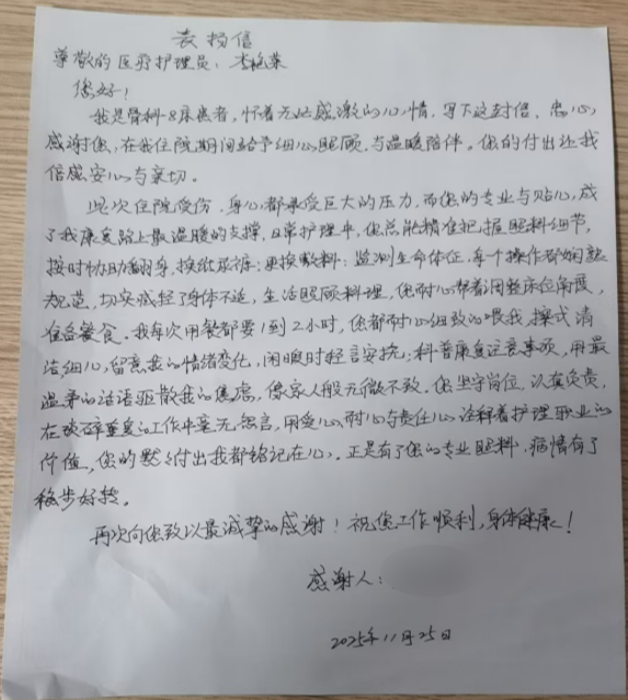 表扬信
尊敬的医疗护理员：李艳荣
您好！
我是骨科8床患者，怀着无比感激的心情，写下这封信，衷心
感谢您，在我住院期间给予细心照顾，与温暖陪伴。您的付出让我
倍感安心与亲切。
此次住院受伤，身心都承受巨大的压力，而您的专业与贴心，成
了我康复路上最温暖的支撑，日常护理中，您总能精准把握照料细节，
按时协助翻身，换纸尿裤；更换敷料；监测生命体征，每个操作都娴熟
规范，切实减轻了身体不适，生活照顾料理，您耐心帮着调整床位角度，
准备餐食。我每次用餐都要1到2小时，您都耐心细致的喂我，擦式清
洁，细心，留意我的情绪变化，闲暇时轻言安抚；科普康复注意事项，用最
温柔的话语驱散我的焦虑，像家人般无微不致。您坚守岗位，认真负责，
在琐碎重复的工作中毫无怨言，用爱心，耐心与责任心诠释着护理职业的
价值，您的默默付出我都铭记在心，正是有了您的专业照料，病情有了
稳步好转。
再次向您致以最诚挚的感谢！祝您工作顺利，身体健康！
感谢人：
2025年11月25日